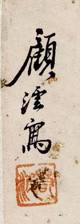 顧澐寫